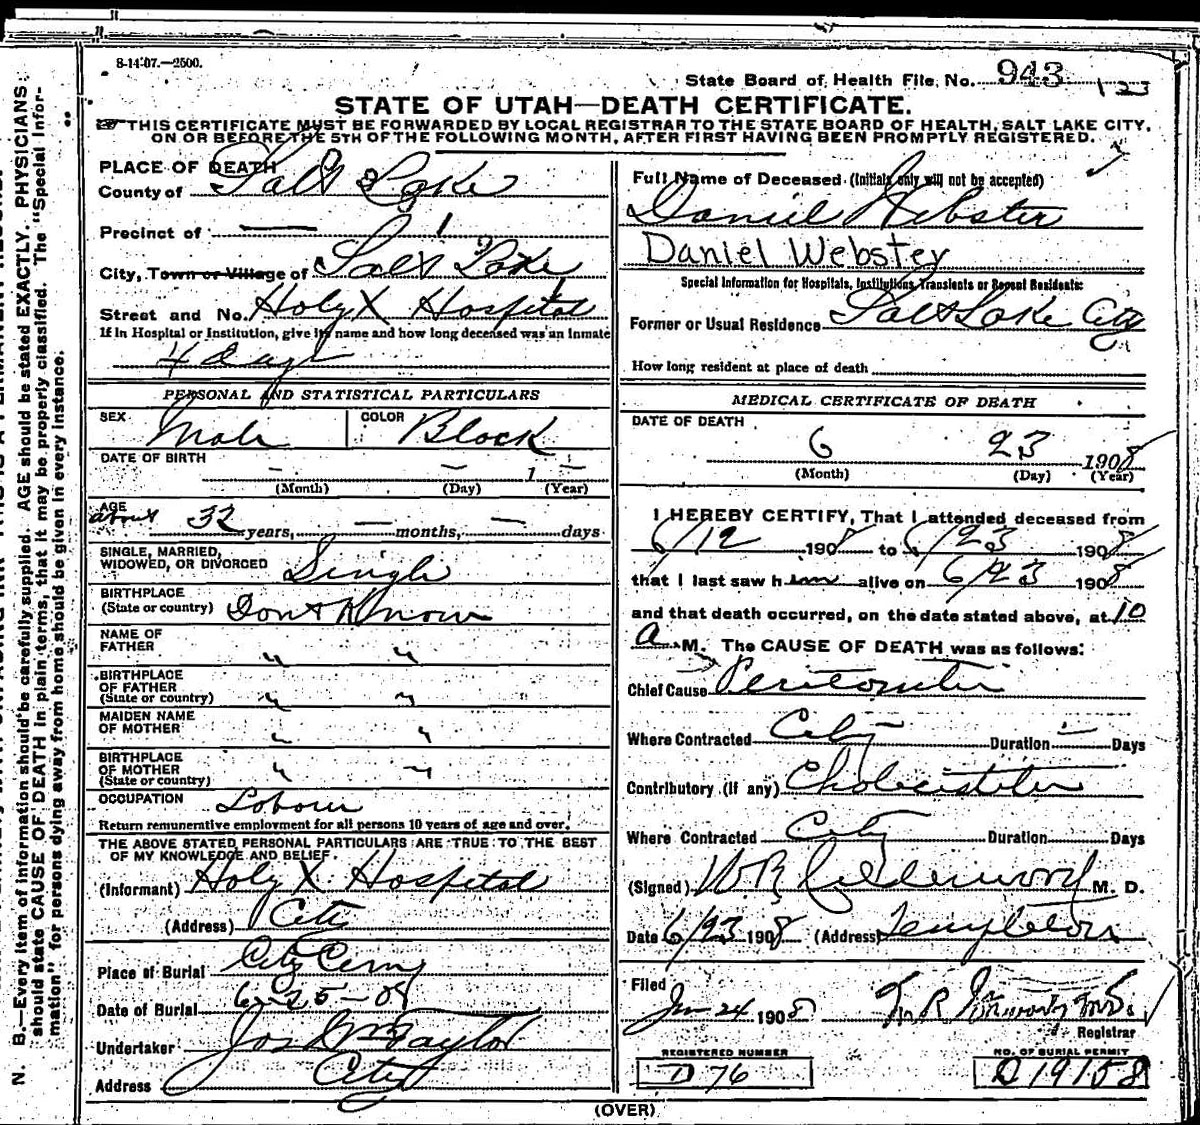 8-14-07.—2500.
State Board of Health File No. 943
123
STATE OF UTAH—DEATH CERTIFICATE.
THIS CERTIFICATE MUST BE FORWARDED BY LOCAL REGISTRAR TO THE STATE BOARD OF HEALTH, SALT LAKE CITY,
ON OR BEFORE THE 5TH OF THE FOLLOWING MONTH, AFTER FIRST HAVING BEEN PROMPTLY REGISTERED.
PLACE OF DEATH
County of Salt Lake
Precinct of — 1
City, Town or Village of Salt Lake
Street and No. Holy X Hospital
If in Hospital or Institution, give its name and how long deceased was an inmate
4 days
PERSONAL AND STATISTICAL PARTICULARS
SEX Male COLOR Black
DATE OF BIRTH — — 1 —
(Month) (Day) (Year)
AGE
about 32 years, — months, — days
SINGLE, MARRIED,
WIDOWED, OR DIVORCED Single
BIRTHPLACE
(State or country) Dont Know
NAME OF
FATHER " "
BIRTHPLACE
OF FATHER
(State or country) " "
MAIDEN NAME
OF MOTHER " "
BIRTHPLACE
OF MOTHER
(State or country) " "
OCCUPATION Laborer
Return remunerative employment for all persons 10 years of age and over.
THE ABOVE STATED PERSONAL PARTICULARS ARE TRUE TO THE BEST
OF MY KNOWLEDGE AND BELIEF.
(Informant) Holy X Hospital
(Address) City
Place of Burial City Cemy
Date of Burial 6-25-08
Undertaker Jos Wm Taylor
Address City
Full Name of Deceased (Initials only will not be accepted)
Daniel Webster
Daniel Webster
Special Information for Hospitals, Institutions, Transients or Recent Residents:
Former or Usual Residence Salt Lake City
How long resident at place of death
MEDICAL CERTIFICATE OF DEATH
DATE OF DEATH
6 23 1908
(Month) (Day) (Year)
I HEREBY CERTIFY, That I attended deceased from
6/12 1908 to 6/23 1908
that I last saw him alive on 6/23 1908
and that death occurred, on the date stated above, at 10
a M. The CAUSE OF DEATH was as follows:
Chief Cause Peritonitis
Where Contracted City Duration — Days
Contributory (if any) Cholecistitis
Where Contracted City Duration Days
(Signed) W R Calderwood M. D.
Date 6/23 1908 (Address) Templeton
Filed
Jun 24 1908
Registrar
REGISTERED NUMBER
D 76
NO. OF BURIAL PERMIT
D 19158
(OVER)
N. B.—Every item of information should be carefully supplied. AGE should be stated EXACTLY. PHYSICIANS
should state CAUSE OF DEATH in plain terms, that it may be properly classified. The "Special Infor-
mation" for persons dying away from home should be given in every instance.